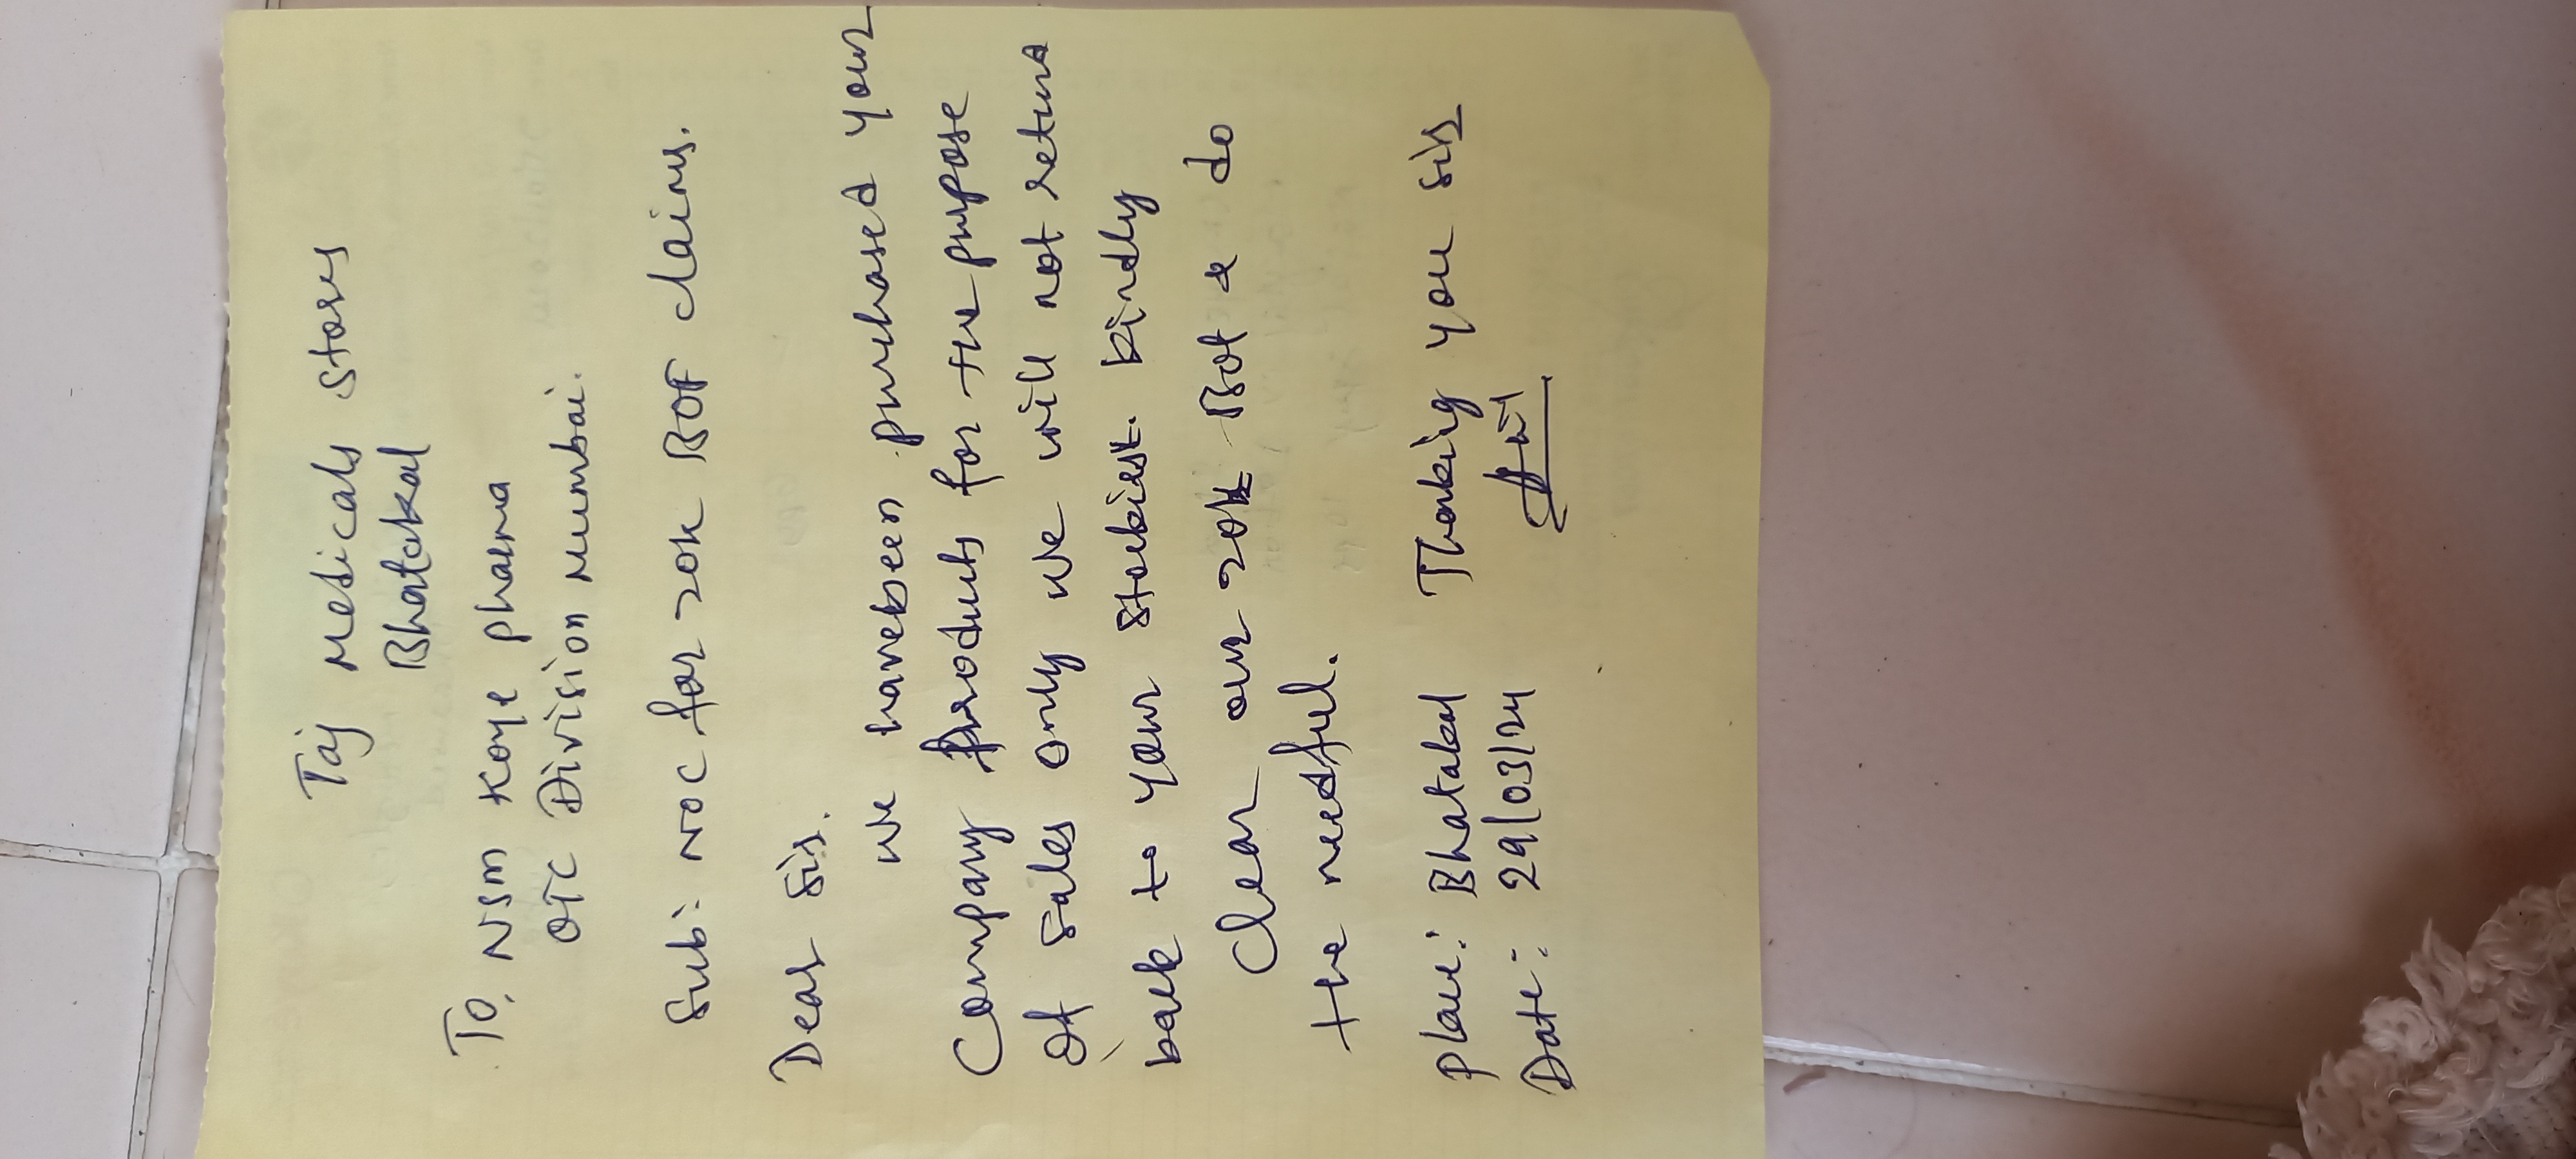 Taj Medicals Stores
Bhatakal
To, NSM Koye pharma
OTC Division Mumbai.
Sub: NOC for 20k BOF claims.
Dear Sir.
We havebeen purchased your
Company products for the purpose
Of Sales only we will not return
back to your Stockiest. kindly
Clear our 20k Bot & do
the needful.
Place: Bhatakal Thanking you sir
Date: 29/03/24